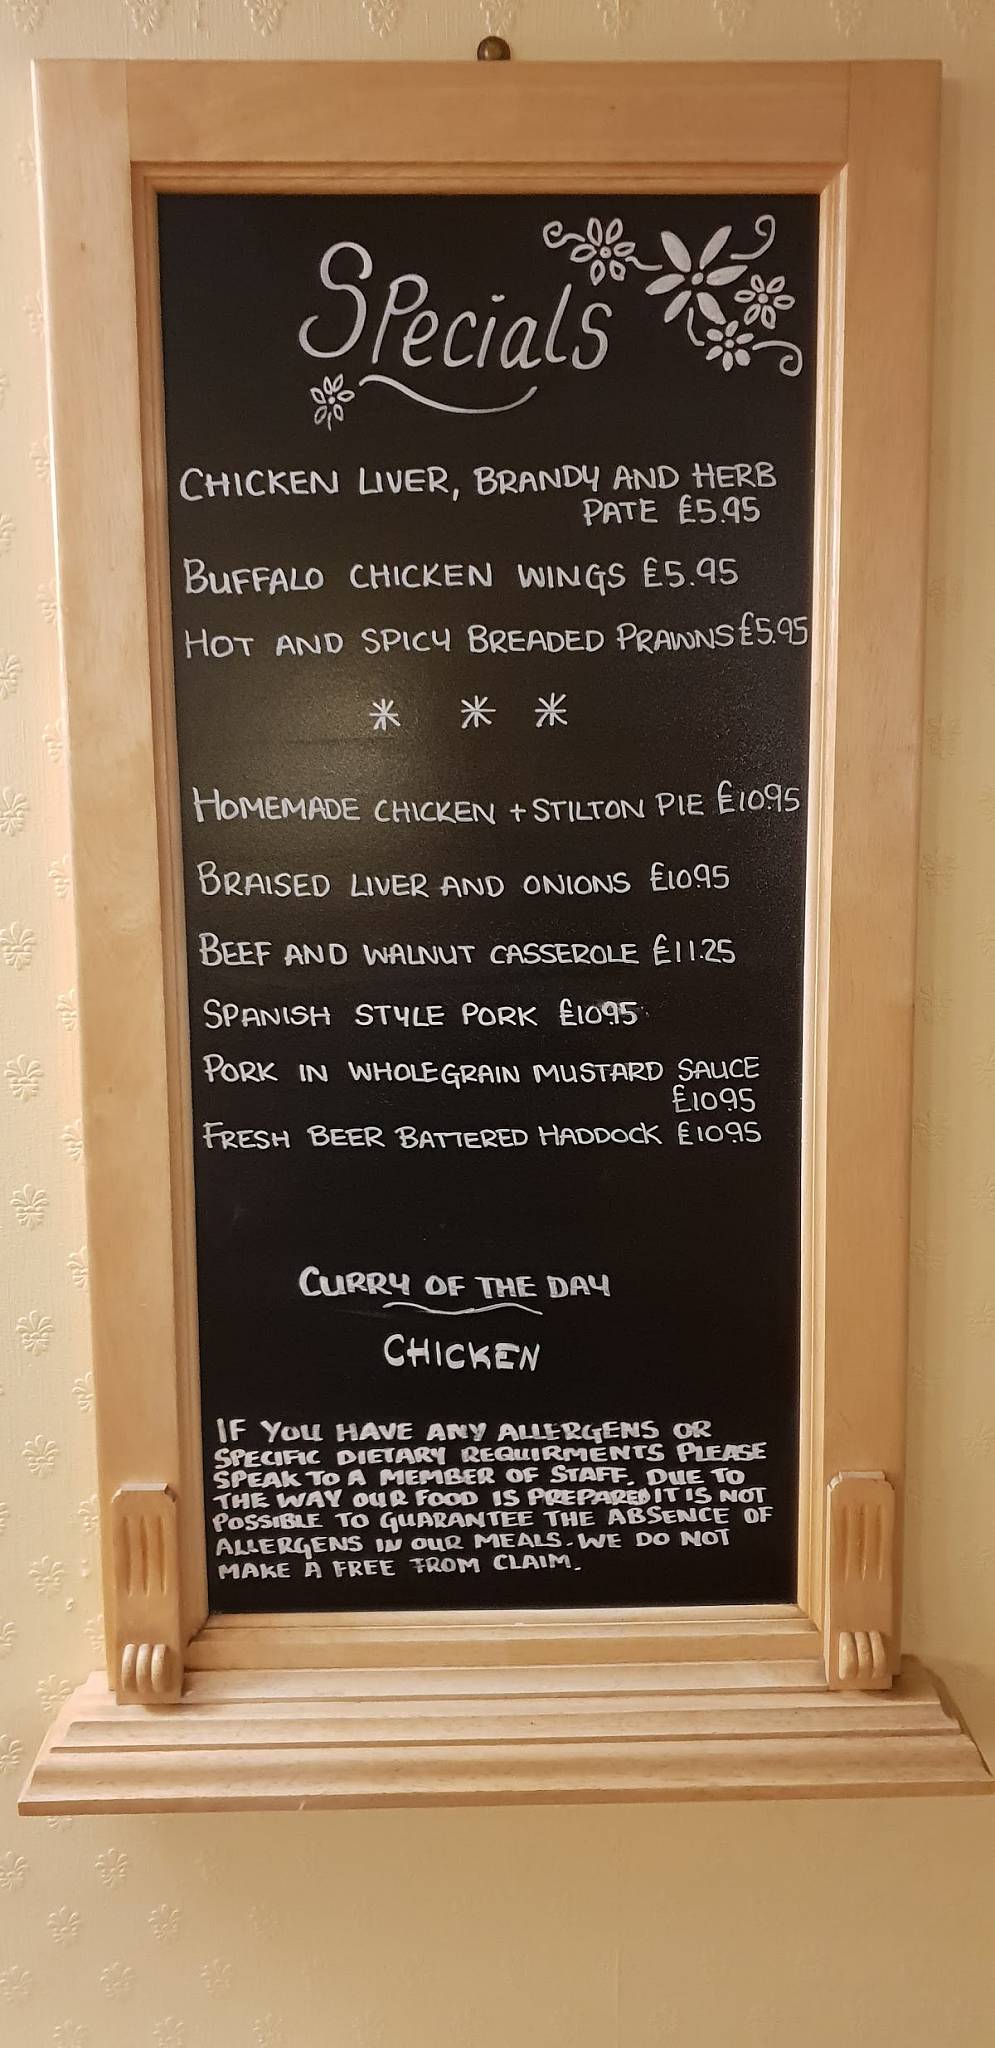 Specials
CHICKEN LIVER, BRANDY AND HERB
PATE £5.95
BUFFALO CHICKEN WINGS £5.95
HOT AND SPICY BREADED PRAWNS £5.95
* * *
HOMEMADE CHICKEN + STILTON PIE £10.95
BRAISED LIVER AND ONIONS £10.95
BEEF AND WALNUT CASSEROLE £11.25
SPANISH STYLE PORK £10.95
PORK IN WHOLEGRAIN MUSTARD SAUCE
£10.95
FRESH BEER BATTERED HADDOCK £10.95
CURRY OF THE DAY
CHICKEN
IF YOU HAVE ANY ALLERGENS OR
SPECIFIC DIETARY REQUIRMENTS PLEASE
SPEAK TO A MEMBER OF STAFF. DUE TO
THE WAY OUR FOOD IS PREPARED IT IS NOT
POSSIBLE TO GUARANTEE THE ABSENCE OF
ALLERGENS IN OUR MEALS. WE DO NOT
MAKE A FREE FROM CLAIM.